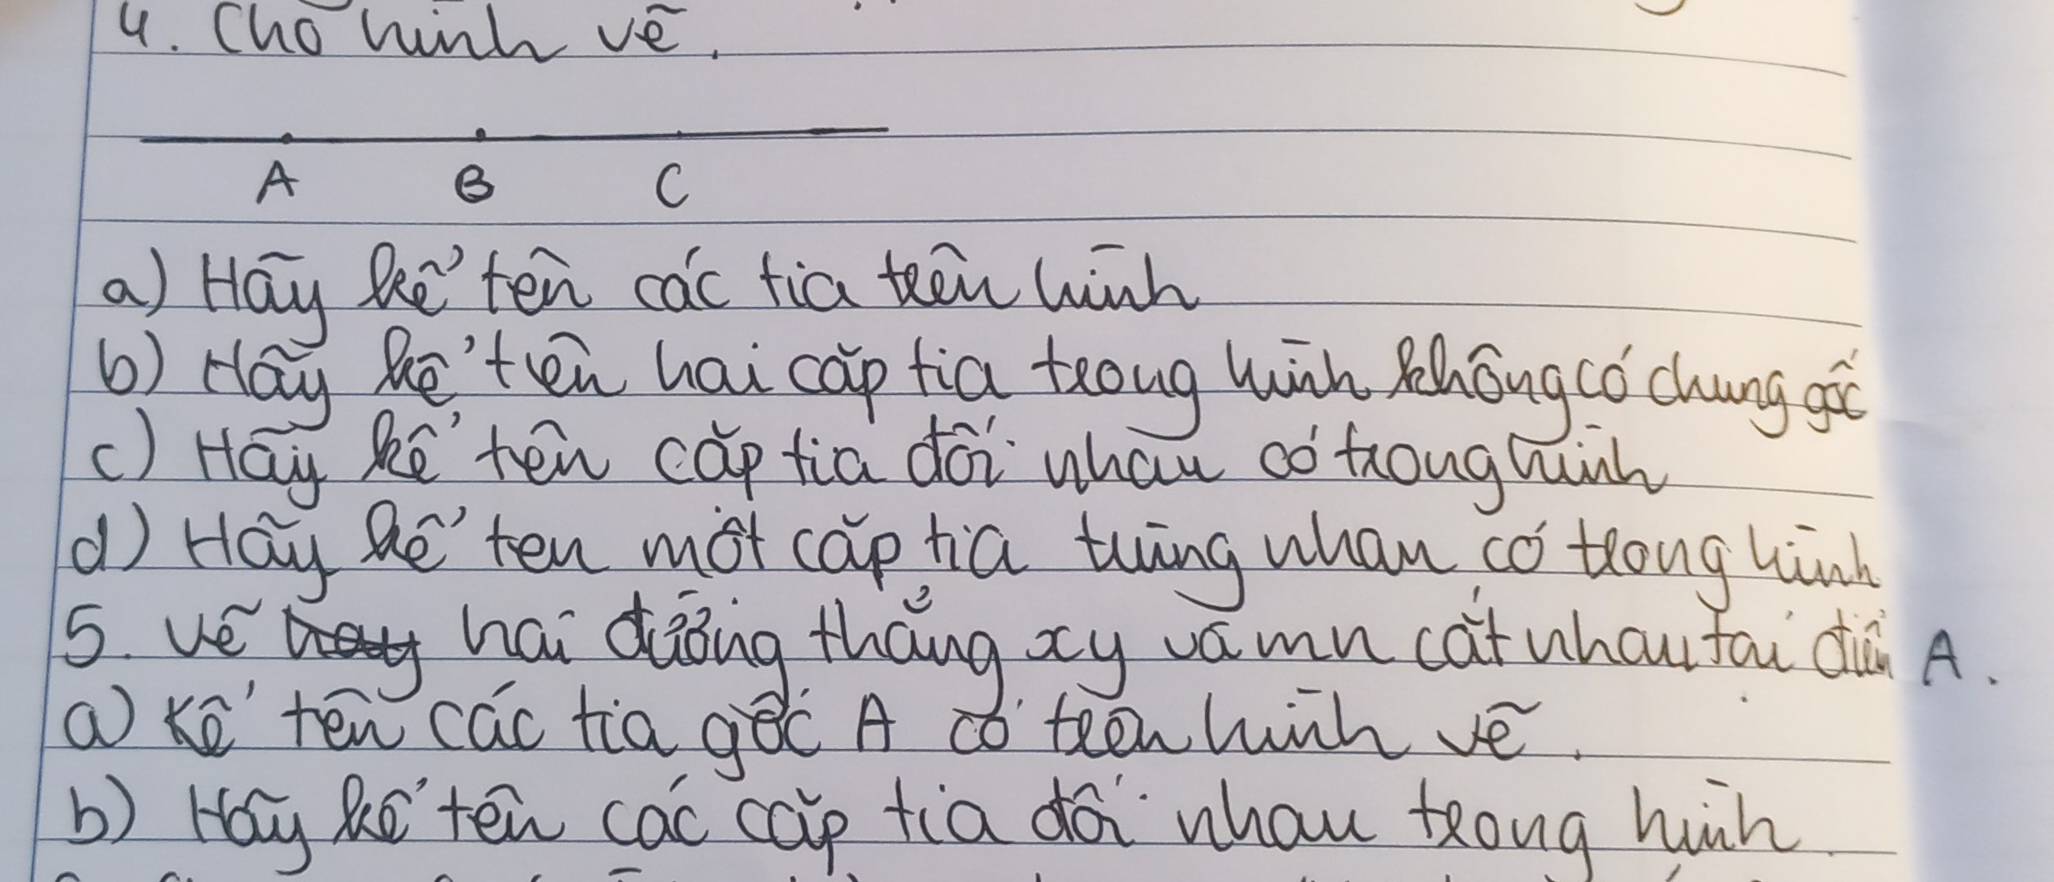 4. Cho hình vẽ.
A B C
a) Hãy kể tên các tia trên hình
b) Hãy kể tên hai cặp tia trong hình không có chung gốc
c) Hãy kể tên cặp tia đối nhau có trong hình
d) Hãy kể tên một cặp tia trùng nhau có trong hình
5. Vẽ hai đường thẳng xy và mn cắt nhau tại điểm A.
a) Kể tên các tia gốc A có trên hình vẽ.
b) Hãy kể tên các cặp tia đối nhau trong hình.